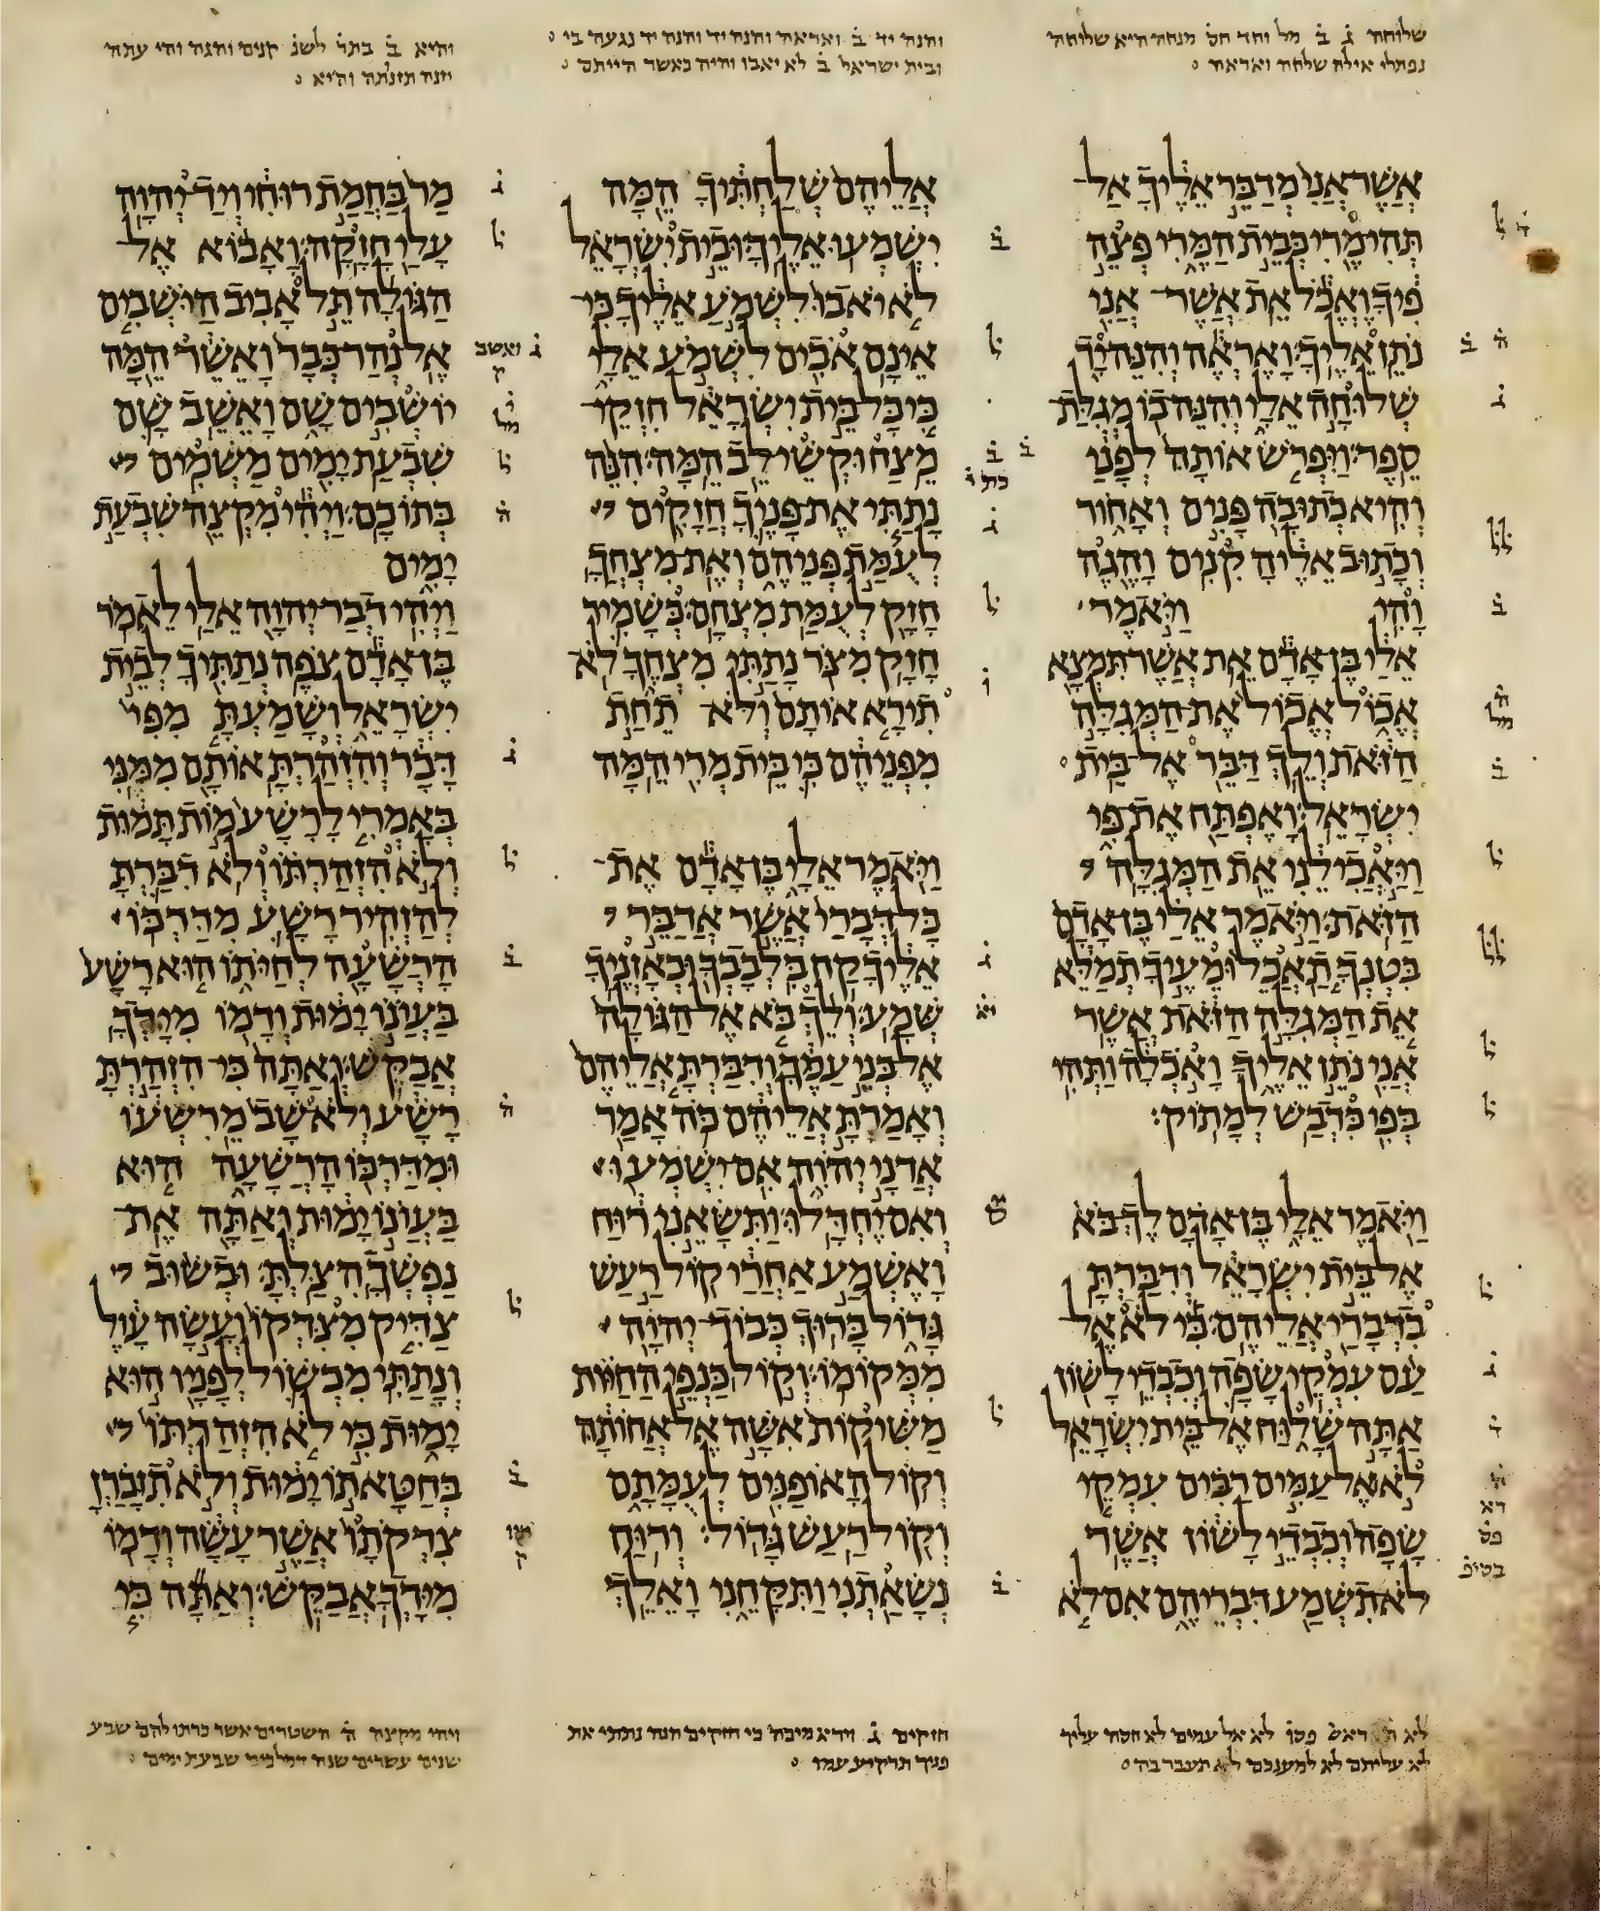 שלוחה ג ב מל וחד חס מנחה היא שלוחה
נפתלי אילה שלחה ואראה
והנה יד ב ואראה והנה יד והנה יד נגעה בי
ובית ישראל ב לא יאבו והיה כאשר הייתם
והיא ב בתר לשנ קנים והגה והי עתה
יזנה תזנתה והיא
אֲשֶׁר אֲנִי מְדַבֵּר אֵלֶיךָ אַל
תְּהִי מֶרִי כְּבֵית הַמֶּרִי פְּצֵה
פִיךָ וֶאֱכֹל אֵת אֲשֶׁר אֲנִי
נֹתֵן אֵלֶיךָ׃ וָאֶרְאֶה וְהִנֵּה יָד
שְׁלוּחָה אֵלָי וְהִנֵּה בוֹ מְגִלַּת
סֵפֶר׃ וַיִּפְרֹשׂ אוֹתָהּ לְפָנַי
וְהִיא כְתוּבָה פָּנִים וְאָחוֹר
וְכָתוּב אֵלֶיהָ קִנִים וָהֶגֶה
וָהִי׃ וַיֹּאמֶר
אֵלַי בֶּן אָדָם אֵת אֲשֶׁר תִּמְצָא
אֱכוֹל אֱכוֹל אֶת הַמְּגִלָּה
הַזֹּאת וְלֵךְ דַּבֵּר אֶל בֵּית
יִשְׂרָאֵל׃ וָאֶפְתַּח אֶת פִּי
וַיַּאֲכִלֵנִי אֵת הַמְּגִלָּה
הַזֹּאת׃ וַיֹּאמֶר אֵלַי בֶּן אָדָם
בִּטְנְךָ תַאֲכֵל וּמֵעֶיךָ תְמַלֵּא
אֵת הַמְּגִלָּה הַזֹּאת אֲשֶׁר
אֲנִי נֹתֵן אֵלֶיךָ וָאֹכְלָה וַתְּהִי
בְּפִי כִּדְבַשׁ לְמָתוֹק׃
וַיֹּאמֶר אֵלָי בֶּן אָדָם לֶךְ בֹּא
אֶל בֵּית יִשְׂרָאֵל וְדִבַּרְתָּ
בִדְבָרַי אֲלֵיהֶם׃ כִּי לֹא אֶל
עַם עִמְקֵי שָׂפָה וְכִבְדֵי לָשׁוֹן
אַתָּה שָׁלוּחַ אֶל בֵּית יִשְׂרָאֵל׃
לֹא אֶל עַמִּים רַבִּים עִמְקֵי
שָׂפָה וְכִבְדֵי לָשׁוֹן אֲשֶׁר
לֹא תִשְׁמַע דִּבְרֵיהֶם אִם לֹא
אֲלֵיהֶם שְׁלַחְתִּיךָ הֵמָּה
יִשְׁמְעוּ אֵלֶיךָ׃ וּבֵית יִשְׂרָאֵל
לֹא יֹאבוּ לִשְׁמֹעַ אֵלֶיךָ כִּי
אֵינָם אֹבִים לִשְׁמֹעַ אֵלָי
כִּי כָּל בֵּית יִשְׂרָאֵל חִזְקֵי
מֵצַח וּקְשֵׁי לֵב הֵמָּה׃ הִנֵּה
נָתַתִּי אֶת פָּנֶיךָ חֲזָקִים
לְעֻמַּת פְּנֵיהֶם וְאֶת מִצְחֲךָ
חָזָק לְעֻמַּת מִצְחָם׃ כְּשָׁמִיר
חָזָק מִצֹּר נָתַתִּי מִצְחֶךָ לֹא
תִירָא אוֹתָם וְלֹא תֵחַת
מִפְּנֵיהֶם כִּי בֵּית מְרִי הֵמָּה
וַיֹּאמֶר אֵלָי בֶּן אָדָם אֶת
כָּל דְּבָרַי אֲשֶׁר אֲדַבֵּר
אֵלֶיךָ קַח בִּלְבָבְךָ וּבְאָזְנֶיךָ
שְׁמָע׃ וְלֵךְ בֹּא אֶל הַגּוֹלָה
אֶל בְּנֵי עַמֶּךָ וְדִבַּרְתָּ אֲלֵיהֶם
וְאָמַרְתָּ אֲלֵיהֶם כֹּה אָמַר
אֲדֹנָי יְהוִה אִם יִשְׁמְעוּ
וְאִם יֶחְדָּלוּ׃ וַתִּשָּׂאֵנִי רוּחַ
וָאֶשְׁמַע אַחֲרַי קוֹל רַעַשׁ
גָּדוֹל בָּרוּךְ כְּבוֹד יְהוָה
מִמְּקוֹמוֹ׃ וְקוֹל כַּנְפֵי הַחַיּוֹת
מַשִּׁיקוֹת אִשָּׁה אֶל אֲחוֹתָהּ
וְקוֹל הָאוֹפַנִּים לְעֻמָּתָם
וְקוֹל רַעַשׁ גָּדוֹל׃ וְרוּחַ
נְשָׂאַתְנִי וַתִּקָּחֵנִי וָאֵלֵךְ
מַר בַּחֲמַת רוּחִי וְיַד יְהוָה
עָלַי חָזָקָה׃ וָאָבוֹא אֶל
הַגּוֹלָה תֵּל אָבִיב הַיֹּשְׁבִים
אֶל נְהַר כְּבָר וָאֵשֵׁר הֵמָּה
יוֹשְׁבִים שָׁם וָאֵשֵׁב שָׁם
שִׁבְעַת יָמִים מַשְׁמִים
בְּתוֹכָם׃ וַיְהִי מִקְצֵה שִׁבְעַת
יָמִים
וַיְהִי דְבַר יְהוָה אֵלַי לֵאמֹר׃
בֶּן אָדָם צֹפֶה נְתַתִּיךָ לְבֵית
יִשְׂרָאֵל וְשָׁמַעְתָּ מִפִּי
דָּבָר וְהִזְהַרְתָּ אוֹתָם מִמֶּנִּי׃
בְּאָמְרִי לָרָשָׁע מוֹת תָּמוּת
וְלֹא הִזְהַרְתּוֹ וְלֹא דִבַּרְתָּ
לְהַזְהִיר רָשָׁע מִדַּרְכּוֹ
הָרְשָׁעָה לְחַיֹּתוֹ הוּא רָשָׁע
בַּעֲוֺנוֹ יָמוּת וְדָמוֹ מִיָּדְךָ
אֲבַקֵּשׁ׃ וְאַתָּה כִּי הִזְהַרְתָּ
רָשָׁע וְלֹא שָׁב מֵרִשְׁעוֹ
וּמִדַּרְכּוֹ הָרְשָׁעָה הוּא
בַּעֲוֺנוֹ יָמוּת וְאַתָּה אֶת
נַפְשְׁךָ הִצַּלְתָּ׃ וּבְשׁוּב
צַדִּיק מִצִּדְקוֹ וְעָשָׂה עָוֶל
וְנָתַתִּי מִכְשׁוֹל לְפָנָיו הוּא
יָמוּת כִּי לֹא הִזְהַרְתּוֹ
בְּחַטָּאתוֹ יָמוּת וְלֹא תִזָּכַרְןָ
צִדְקֹתָו אֲשֶׁר עָשָׂה וְדָמוֹ
מִיָּדְךָ אֲבַקֵּשׁ׃ וְאַתָּה כִּי
לא ראש פסו לא אל עמים לא חסה עליך
לא עליתם לא למענכם לא תעבר בה
חזקים ג וירא מיכה כי חזקים הנה נתתי את
פניך תרקיע עמו
ויהי מקצה ה השטרים אשר כרתו להם שבע
שנים עשרים שנה דמלכים שבעת ימים